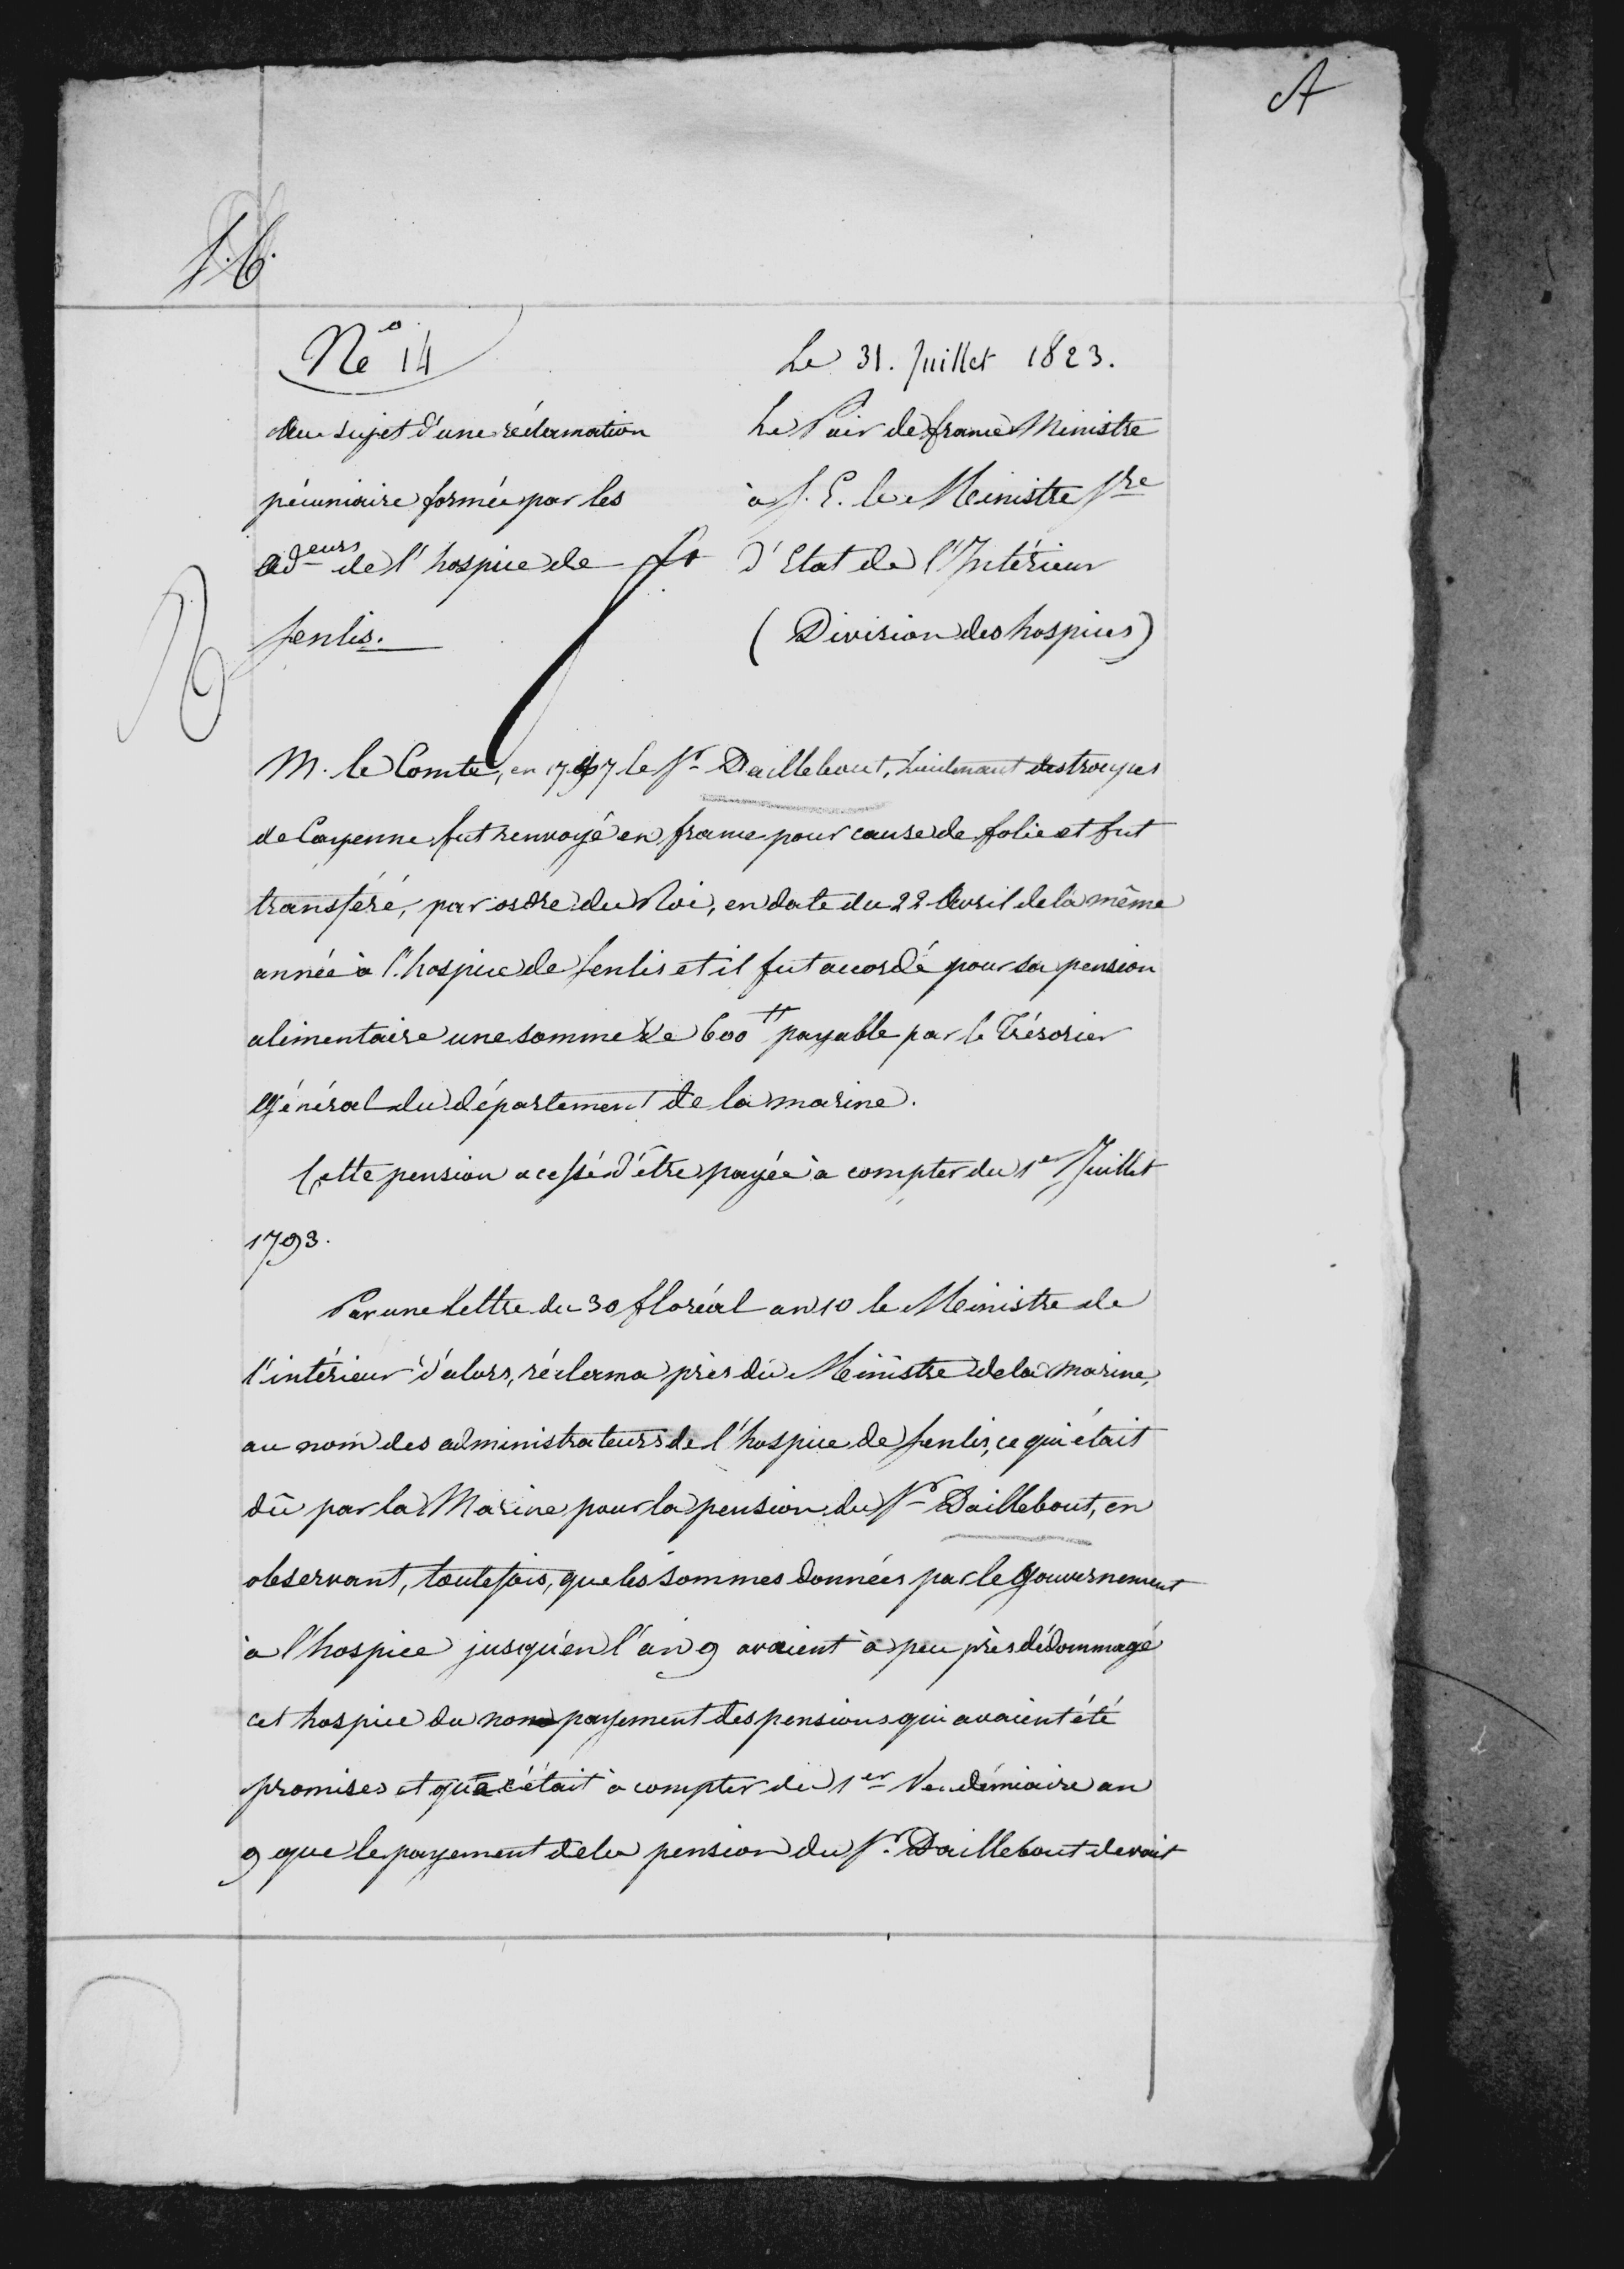 A
N° 14
Au sujet d'une réclamation
pécuniaire formée par les
Ad^eurs de l'hospice de
Senlis.
Le 31. Juillet 1823.
Le Pair de france Ministre
à S. E. le Ministre S^re
d'Etat de l'Intérieur
(Division des hospices)
M. le Comte, en 1767 le S^r Daillebout, Lieutenant des troupes
de Cayenne fut renvoyé en france pour cause de folie et fut
transféré, par ordre du Roi, en date du 22 Avril de la même
année à l'hospice de Senlis et il fut accordé pour sa pension
alimentaire une somme de 600 ^tt payable par le Trésorier
Général du département de la marine.
Cette pension a cessé d'être payée à compter du 1^er Juillet
1793.
Par une lettre du 30 floréal an 10 le Ministre de
l'intérieur d'alors, réclama près du Ministre de la marine,
au nom des administrateurs de l'hospice de Senlis, ce qui était
dû par la Marine pour la pension du S^r Daillebout, en
observant, toutefois, que les sommes données par le Gouvernement
à l'hospice jusqu'en l'an 9 avaient à peu près dédommagé
cet hospice du non payement des pensions qui avaient été
promises et que c'était à compter du 1^er Vendémiaire an
9 que le payement de la pension du S^r. Daillebout devait